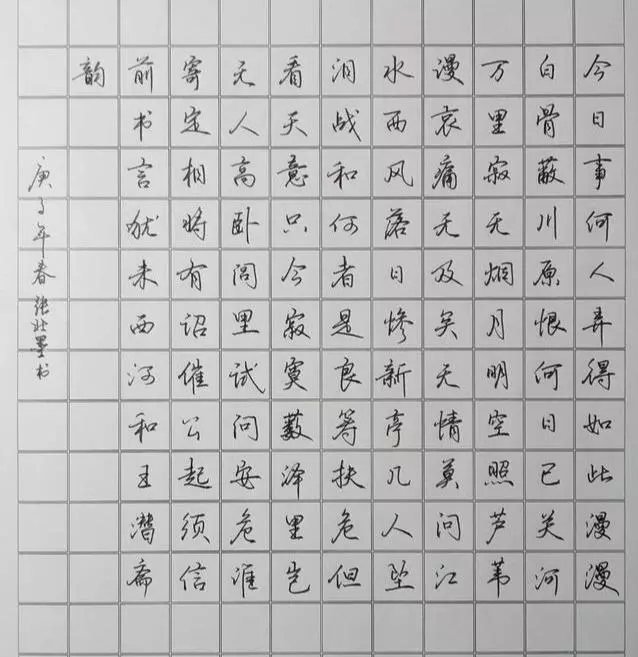 今日事何人弄得如此漫漫
白骨蔽川原恨何日已关河
万里寂无烟月明空照芦苇
谩哀痛无及矣无情莫问江
水西风落日惨新亭几人坠
泪战和何者是良筹扶危但
看天意只今寂寞薮泽里岂
无人高卧闾里试问安危谁
寄定相将有诏催公起须信
前书言犹未西河和王潜斋
韵
庚子年春张壮墨书